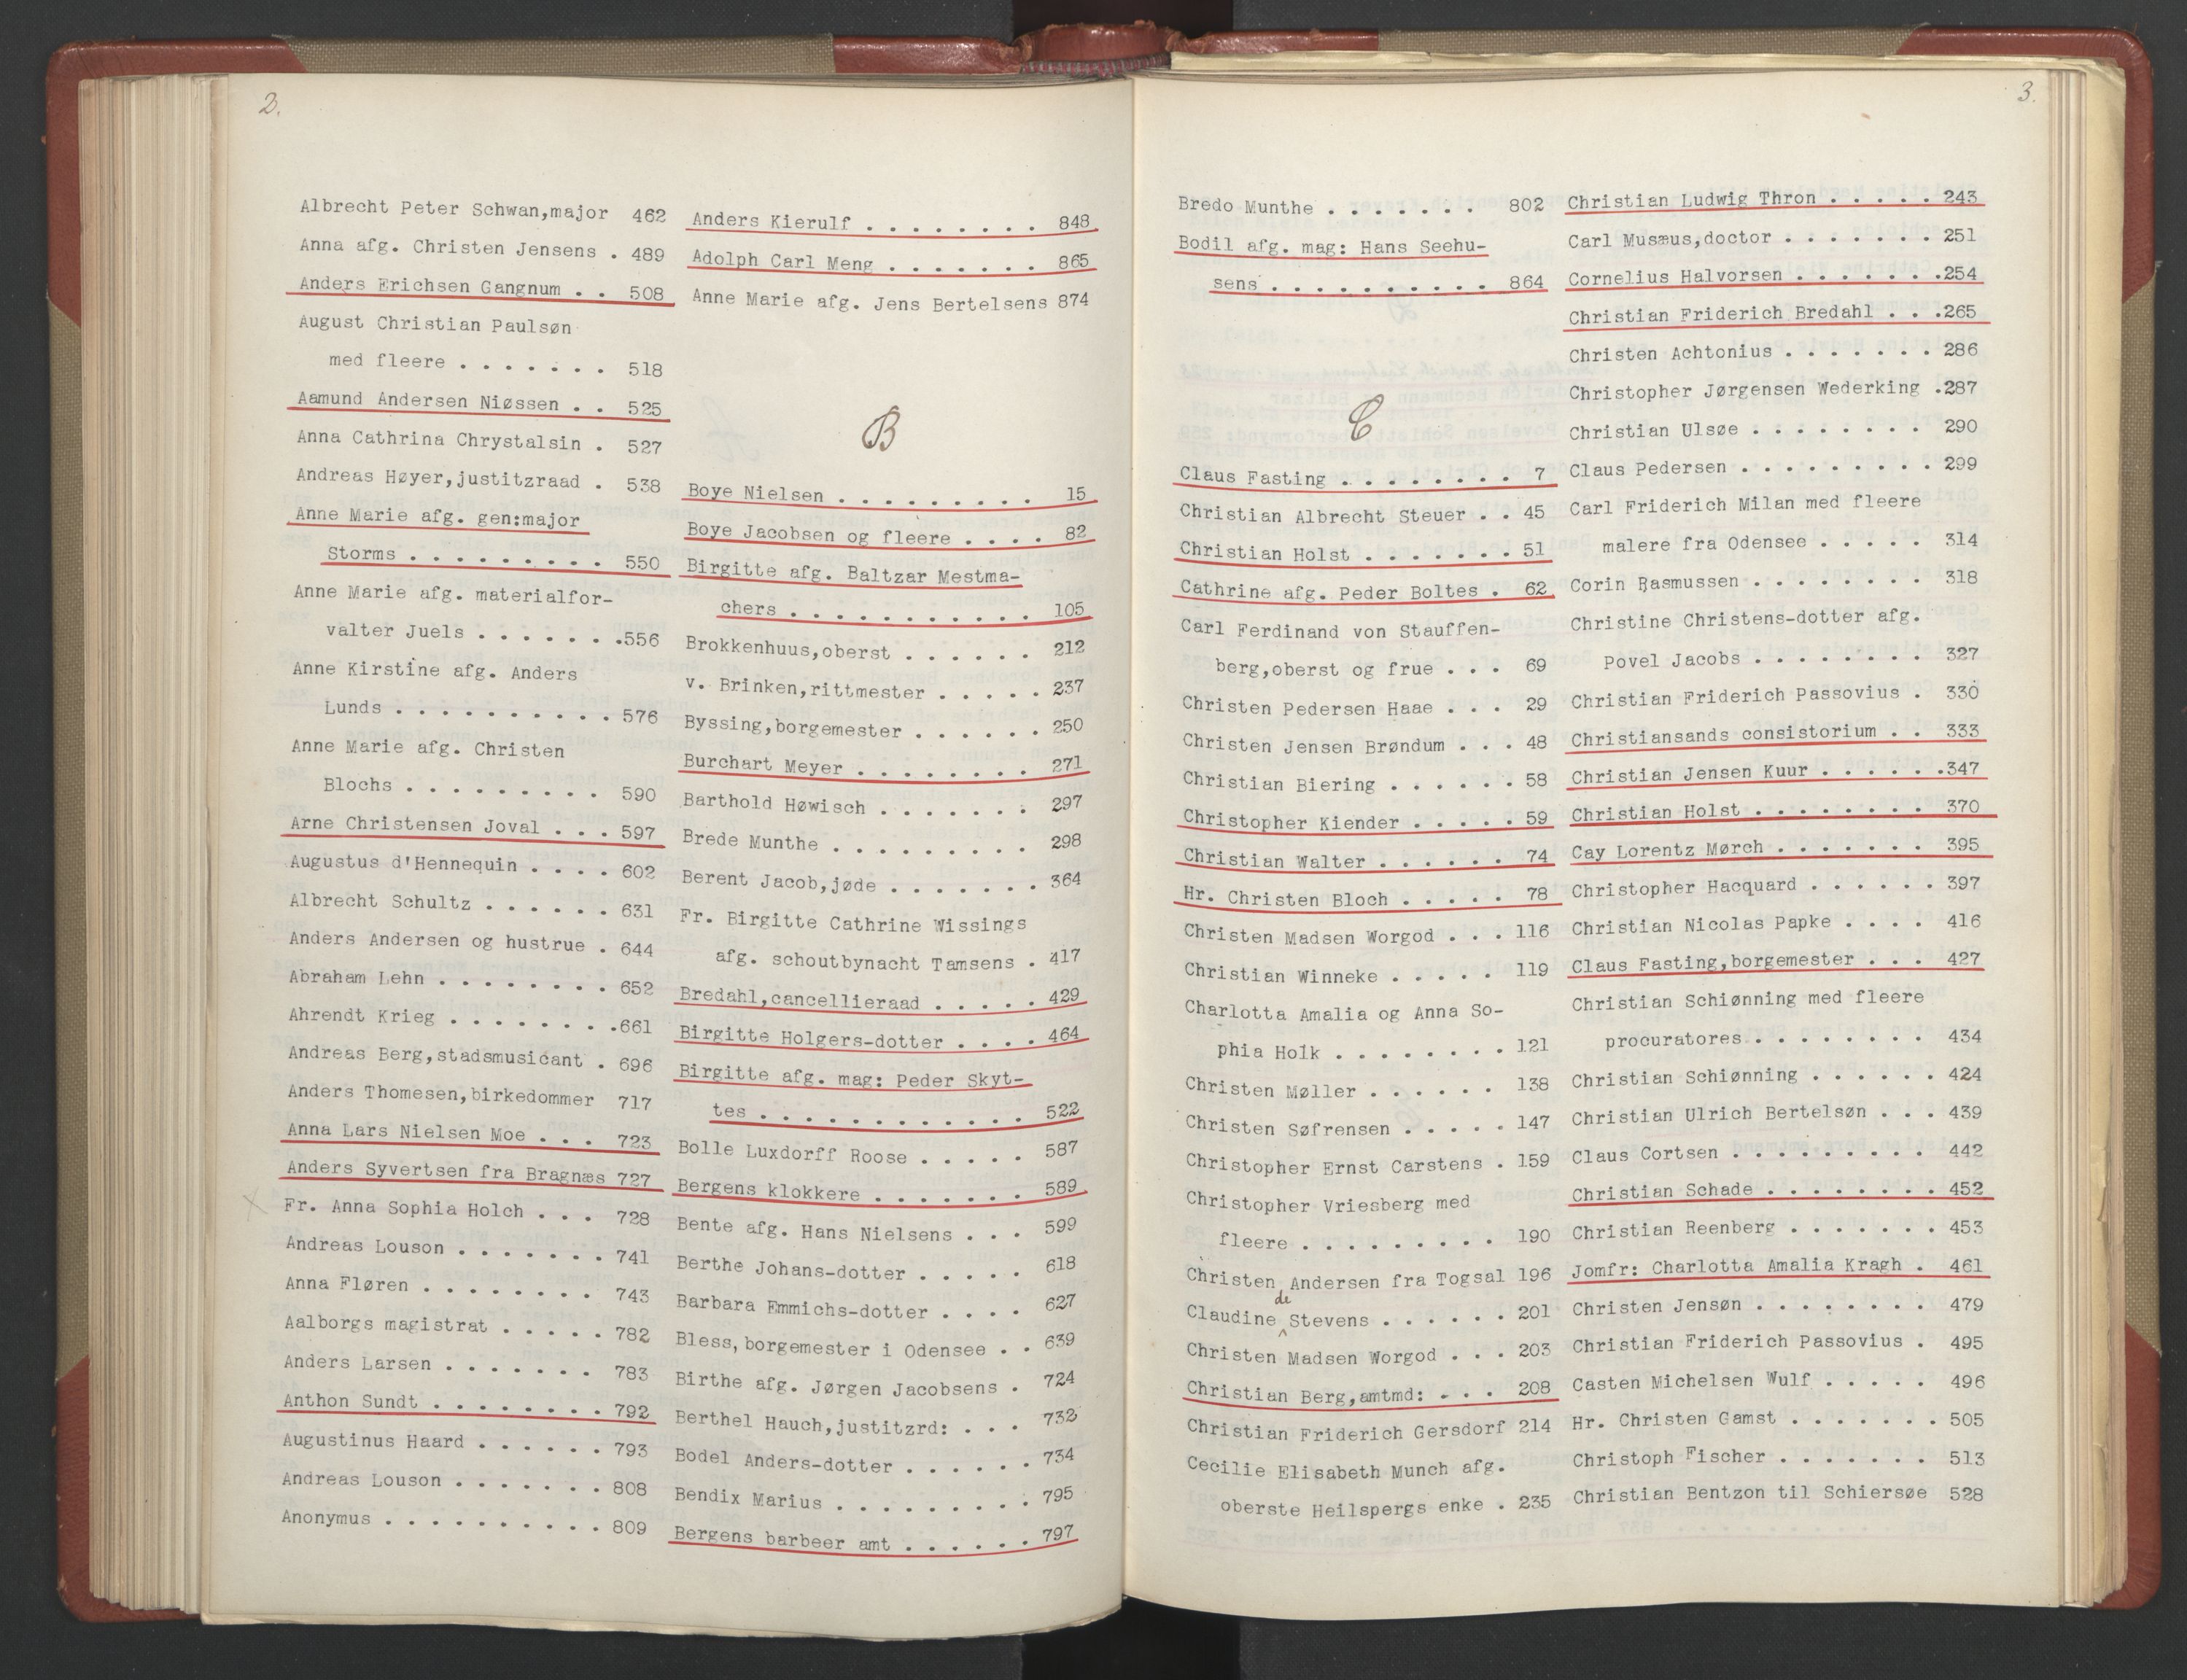 2.
Albrecht Peter Schwan,major 462
Anna afg. Christen Jensens . 489
Anders Erichsen Gangnum . . 508
August Christian Paulsøn
med fleere . . . . . . . 518
Aamund Andersen Niøssen . . 525
Anna Cathrina Chrystalsin . 527
Andreas Høyer,justitzraad . 538
Anne Marie afg. gen:major
Storms . . . . . . . . . 550
Anne Marie afg. materialfor-
valter Juels . . . . . . .556
Anne Kirstine afg. Anders
Lunds . . . . . . . . . . 576
Anne Marie afg. Christen
Blochs . . . . . . . . . 590
Arne Christensen Joval . . . 597
Augustus d'Hennequin . . . . 602
Albrecht Schultz . . . . . . 631
Anders Andersen og hustrue . 644
Abraham Lehn . . . . . . . . 652
Ahrendt Krieg . . . . . . . .661
Andreas Berg,stadsmusicant . 696
Anders Thomesen,birkedommer 717
Anna Lars Nielsen Moe . . . 723
Anders Syvertsen fra Bragnæs 727
x Fr. Anna Sophia Holch . . . 728
Andreas Louson . . . . . . . 741
Anna Fløren . . . . . . . . 743
Aalborgs magistrat . . . . . 782
Anders Larsen . . . . . . . 783
Anthon Sundt . . . . . . . . 792
Augustinus Haard . . . . . . 793
Andreas Louson . . . . . . . 808
Anonymus . . . . . . . . . . 809
Anders Kierulf . . . . . . . . 848
Adolph Carl Meng . . . . . . . 865
Anne Marie afg. Jens Bertelsens 874
B
Boye Nielsen . . . . . . . . . 15
Boye Jacobsen og fleere . . . . 82
Birgitte afg. Baltzar Mestma-
chers . . . . . . . . . . . 105
Brokkenhuus,oberst . . . . . . 212
v. Brinken,rittmester . . . . . 237
Byssing,borgemester . . . . . . 250
Burchart Meyer . . . . . . . . 271
Barthold Høwisch . . . . . . . 297
Brede Munthe . . . . . . . . . 298
Berent Jacob,jøde . . . . . . . 364
Fr. Birgitte Cathrine Wissings
afg. schoutbynacht Tamsens . 417
Bredahl,cancellieraad . . . . . 429
Birgitte Holgers-dotter . . . . 464
Birgitte afg. mag: Peder Skyt-
tes . . . . . . . . . . . . 522
Bolle Luxdorff Roose . . . . . 587
Bergens klokkere . . . . . . . 589
Bente afg. Hans Nielsens . . . 599
Berthe Johans-dotter . . . . . 618
Barbara Emmichs-dotter . . . . 627
Bless,borgemester i Odensee . . 639
Birthe afg. Jørgen Jacobsens . 724
Berthel Hauch,justitzrd: . . . 732
Bodel Anders-dotter . . . . . . 734
Bendix Marius . . . . . . . . . 795
Bergens barbeer amt . . . . . . 797
3.
Bredo Munthe . . . . . . . 802
Bodil afg. mag: Hans Seehu-
sens . . . . . . . . . . 864
C
Claus Fasting . . . . . . . . 7
Christian Albrecht Steuer . . 45
Christian Holst . . . . . . . 51
Cathrine afg. Peder Boltes . 62
Carl Ferdinand von Stauffen-
berg,oberst og frue . . . 69
Christen Pedersen Haae . . . 29
Christen Jensen Brøndum . . . 48
Christian Biering . . . . . . 58
Christopher Kiender . . . . . 59
Christian Walter . . . . . . 74
Hr. Christen Bloch . . . . . 78
Christen Madsen Worgod . . . 116
Christian Winneke . . . . . 119
Charlotta Amalia og Anna So-
phia Holk . . . . . . . . 121
Christen Møller . . . . . . 138
Christen Søfrensen . . . . . 147
Christopher Ernst Carstens . 159
Christopher Vriesberg med
fleere . . . . . . . . . 190
Christen Andersen fra Togsal 196
Claudine de Stevens . . . . . . 201
Christen Madsen Worgod . . . 203
Christian Berg,amtmd: . . . 208
Christian Friderich Gersdorf 214
Cecilie Elisabeth Munch afg.
oberste Heilspergs enke . 235
Christian Ludwig Thron . . . . . 243
Carl Musæus,doctor . . . . . . . 251
Cornelius Halvorsen . . . . . . .254
Christian Friderich Bredahl . . .265
Christen Achtonius . . . . . . . 286
Christopher Jørgensen Wederking .287
Christian Ulsøe . . . . . . . . 290
Claus Pedersen . . . . . . . . . 299
Carl Friderich Milan med fleere
malere fra Odensee . . . . . 314
Corin Rasmussen . . . . . . . . 318
Christine Christens-dotter afg.
Povel Jacobs . . . . . . . . 327
Christian Friderich Passovius . 330
Christiansands consistorium . . 333
Christian Jensen Kuur . . . . . .347
Christian Holst . . . . . . . . 370
Cay Lorentz Mørch . . . . . . . 395
Christopher Hacquard . . . . . . 397
Christian Nicolas Papke . . . . 416
Claus Fasting,borgemester . . . 427
Christian Schiønning med fleere
procuratores. . . . . . . . . 434
Christian Schiønning . . . . . . 424
Christian Ulrich Bertelsøn . . . 439
Claus Cortsen . . . . . . . . . 442
Christian Schade . . . . . . . . 452
Christian Reenberg . . . . . . . 453
Jomfr: Charlotta Amalia Kragh . 461
Christen Jensøn . . . . . . . . 479
Christian Friderich Passovius . 495
Casten Michelsen Wulf . . . . . 496
Hr. Christen Gamst . . . . . . . 505
Christoph Fischer . . . . . . . 513
Christian Bentzon til Schiersøe 528